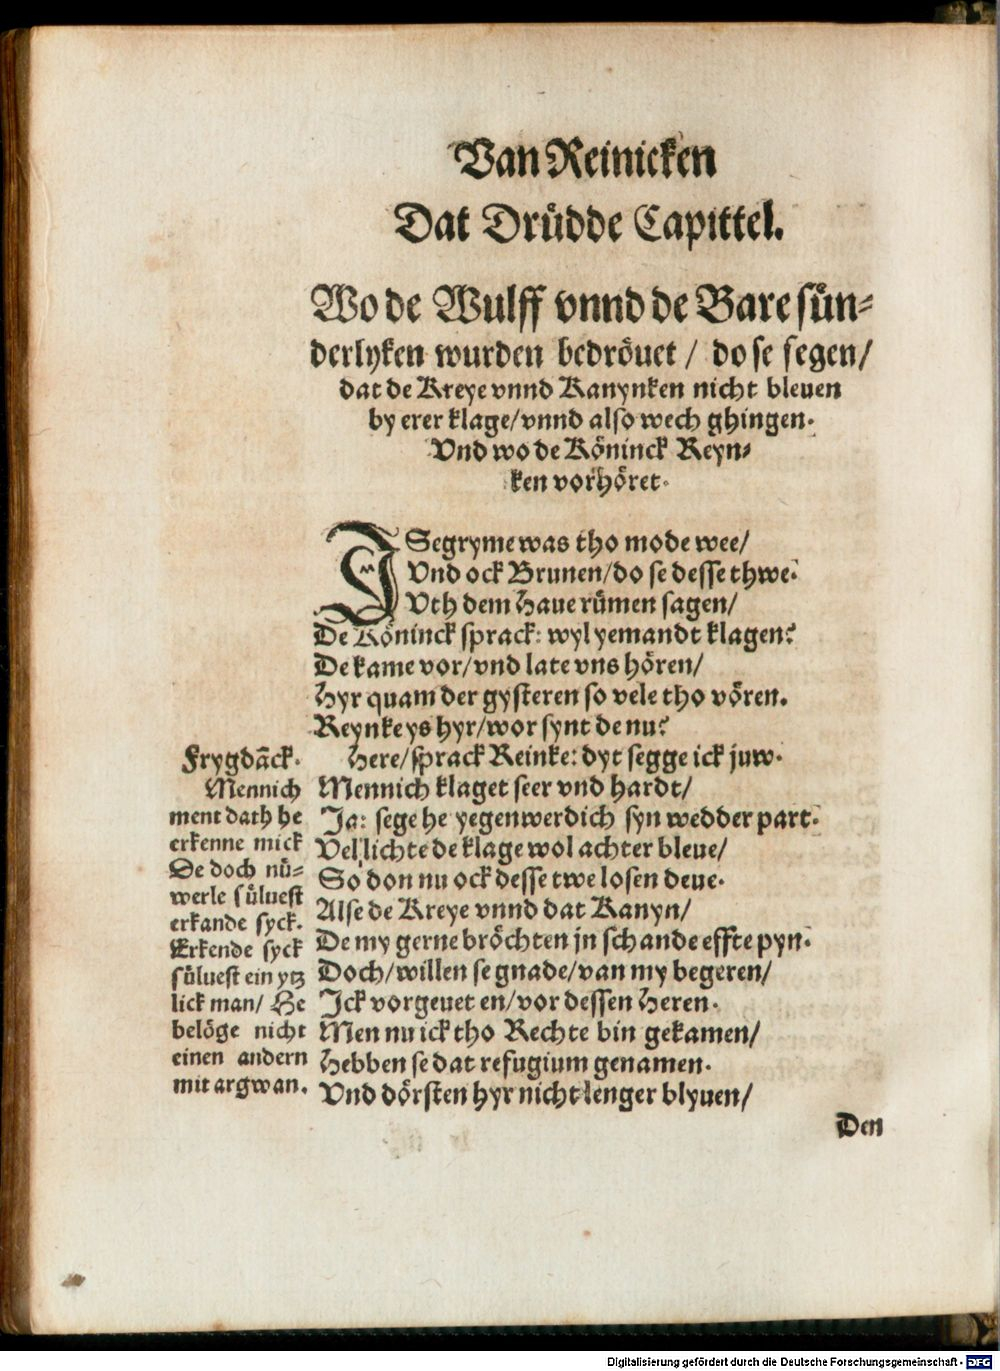 Van Reinicken
Dat Drüdde Capittel.
Wo de Wulff vnnd de Bare sün-
derlyken wurden bedröuet / do se segen /
dat de Kreye vnnd Kanynken nicht bleuen
by erer klage / vnnd also wech ghingen.
Vnd wo de Köninck Reyn-
ken vorhöret.
ISegryme was tho mode wee /
Vnd ock Brunen / do se desse thwe.
Vth dem Haue rümen sagen /
De Köninck sprack: wyl yemandt klagen?
De kame vor / vnd late vns hören /
Hyr quam der gysteren so vele tho vören.
Reynke ys hyr / wor synt de nu?
Here / sprack Reinke: dyt segge ick juw.
Mennich klaget seer vnd hardt /
Ja: sege he yegenwerdich syn wedder part.
Vellichte de klage wol achter bleue /
So don nu ock desse twe losen deue.
Alse de Kreye vnnd dat Kanyn /
De my gerne bröchten jn schande effte pyn.
Doch / willen se gnade / van my begeren /
Ick vorgeuet en / vor dessen Heren.
Men nu ick tho Rechte bin gekamen /
Hebben se dat refugium genamen.
Vnd dörsten hyr nicht lenger blyuen /
Frygdāck.
Mennich
ment dath he
erkenne mick
De doch nü-
werle süluest
erkande syck.
Erkende syck
süluest ein ytz
lick man / He
belöge nicht
einen andern
mit argwan.
Den
Digitalisierung gefördert durch die Deutsche Forschungsgemeinschaft - DFG